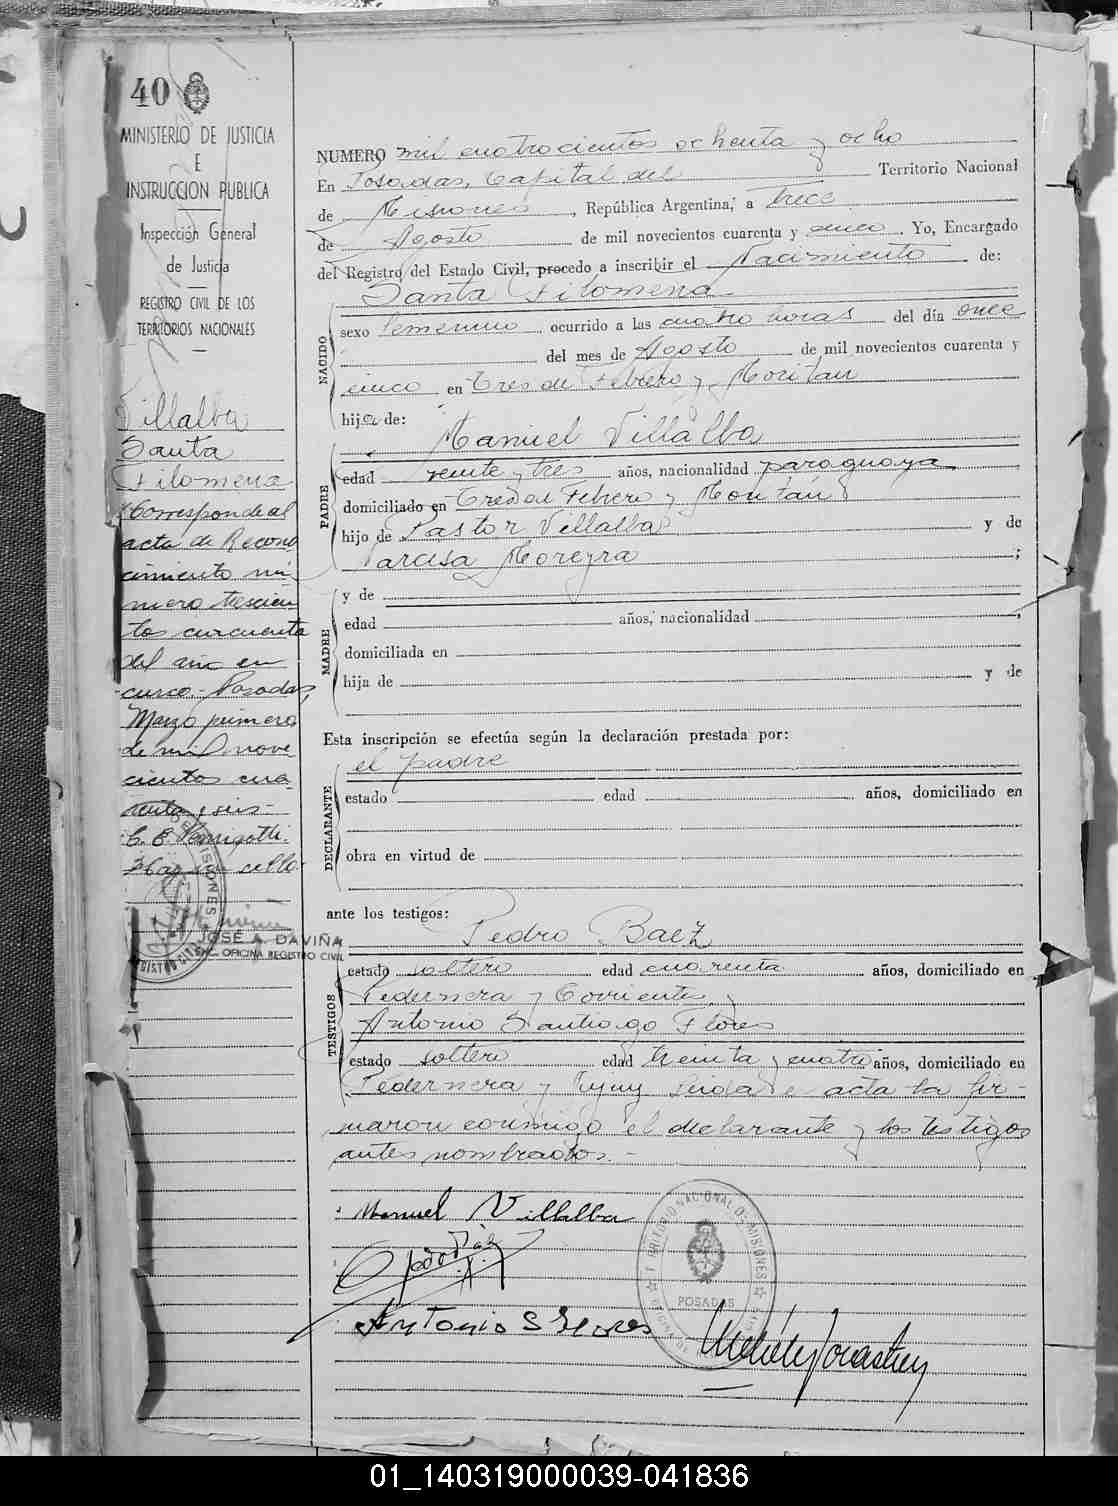 40
MINISTERIO DE JUSTICIA
E
INSTRUCCION PUBLICA
Inspección General
de Justicia
REGISTRO CIVIL DE LOS
TERRITORIOS NACIONALES
Villalba
Santa
Filomena
Corresponde al
acta de Recono
cimiento nú
mero trescien
tos cincuenta
del año en
curso.- Posadas,
Marzo primero
de mil nove
cientos cua
renta y seis-
Hay un sello.
JOSÉ A. DAVIÑA
ENC. OFICINA REGISTRO CIVIL
NUMERO mil cuatrocientos ochenta y ocho
En Posadas, Capital del Territorio Nacional
de Misiones, República Argentina, a Trece
de Agosto de mil novecientos cuarenta y cinco. Yo, Encargado
del Registro del Estado Civil, procedo a inscribir el Nacimiento de:
Santa Filomena
NACIDO
sexo femenino ocurrido a las cuatro horas del día once
del mes de Agosto de mil novecientos cuarenta y
cinco en Tres de Febrero y Moritan
hija de:
Manuel Villalba
PADRE
edad veinte y tres años, nacionalidad paraguaya
domiciliado en Tres de Febrero y Moritan
hijo de Pastor Villalba y de
Narcisa Moreyra ;
MADRE
y de
edad años, nacionalidad ,
domiciliada en
hija de y de
Esta inscripción se efectúa según la declaración prestada por:
el padre
DECLARANTE
estado edad años, domiciliado en
obra en virtud de
ante los testigos:
Pedro Baez
TESTIGOS
estado soltero edad cuarenta años, domiciliado en
Pedernera y Corrientes y
Antonio Santiago Flores
estado soltero edad treinta y cuatro años, domiciliado en
Pedernera y Leída el acta la fir-
maron conmigo el declarante y los testigos
antes nombrados.-
Manuel Villalba
Antonio S Flores
TERRITORIO NACIONAL DE MISIONES
POSADAS
01_140319000039-041836